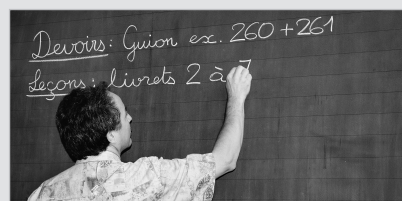 Devoirs: Guion ex. 260 + 261
Leçons: livrets 2 à 7